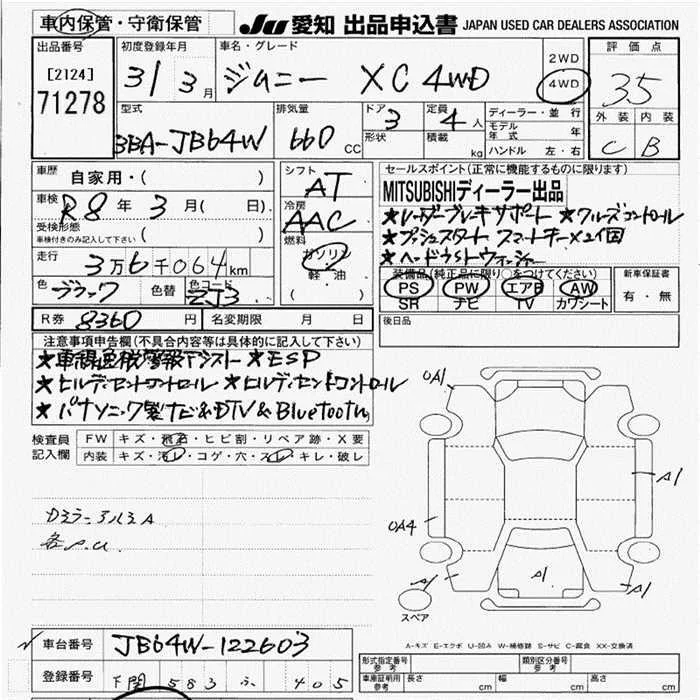 車内保管・守衛保管
JU 愛知 出品申込書 JAPAN USED CAR DEALERS ASSOCIATION
出品番号
[2124]
71278
初度登録年月
31 3月
車名・グレード
ジムニー XC 4WD
2WD
4WD
評価点
3.5
外装 内装
C B
型式
3BA-JB64W
排気量
660 CC
ドア 3
形状
定員 4 人
積載 kg
ディーラー・並行
モデル年式 年
ハンドル 左・右
車歴 自家用・( )
車検 R8 年 3 月( 日)
受検形態
車検付きのみ記入して下さい ( )
走行 3万6千064km
色 ブラック 色替 色コード ZJ3
シフト AT
冷房 AAC
燃料
ガソリン
軽・油
( )
セールスポイント(正常に機能するものに限ります)
MITSUBISHIディーラー出品
★レーダーブレーキサポート ★クルーズコントロール
★プッシュスタート スマートキー×2個
★ヘッドライトウォッシャー
装備品(純正品に限り○をつけてください)
PS PW エアB AW
SR ナビ TV カワシート
新車保証書
有・無
R券 8360 円 名変期限 月 日
後日品
注意事項申告欄(不具合内容等は具体的に記入して下さい)
★車線逸脱警報アシスト ★ESP
★ヒルディセントコントロール ★ヒルディセントコントロール
★パナソニック製ナビ&DTV&Bluetooth
検査員記入欄
FW キズ・飛石・ヒビ割・リペア跡・X要
内装 キズ・汚レ・コゲ・穴・スレ・キレ・破レ
Dミラー
各P.U.
A1
A1
A4
A1
A1
A1
スペア
A-キズ E-エクボ U-凹み W-補修跡 S-サビ C-腐食 XX-交換済
車台番号 JB64W-122603
登録番号 下関 583 ふ 405
形式指定番号 参考
類別区分番号 参考
車庫証明用 参考 長さ cm 幅 cm 高さ cm